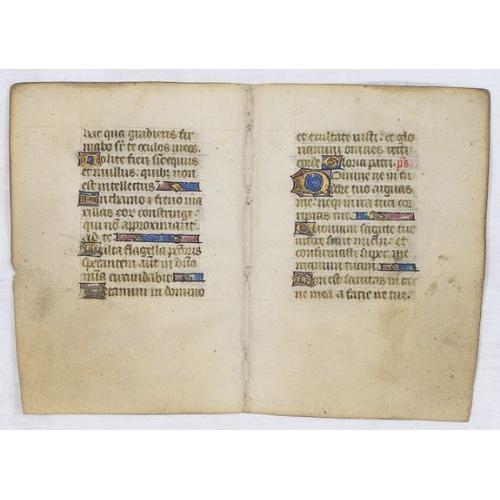 hac qua gradieris fir
mabo sr te oculos meos.
Nolite fieri sicequus
et mulus quibz non
est intellectus
In chamo et freno ma
xillas eor constringe
qui non approximant
ad te
Multa flagella pctoris
sperantem aut in dno
mia circundabit
Letamini in domino
et exultate iusti et glo
riamini omnes recti
corde Gloria patri. ps.
Domine ne in fu
rore tuo arguas
me neqz in ira tua cor
ripias me
Quoniam sagitte tue
infixe sunt michi et
confirmasti super me
manum tuam
Non est sanitas in car
ne mea a facie ire tue